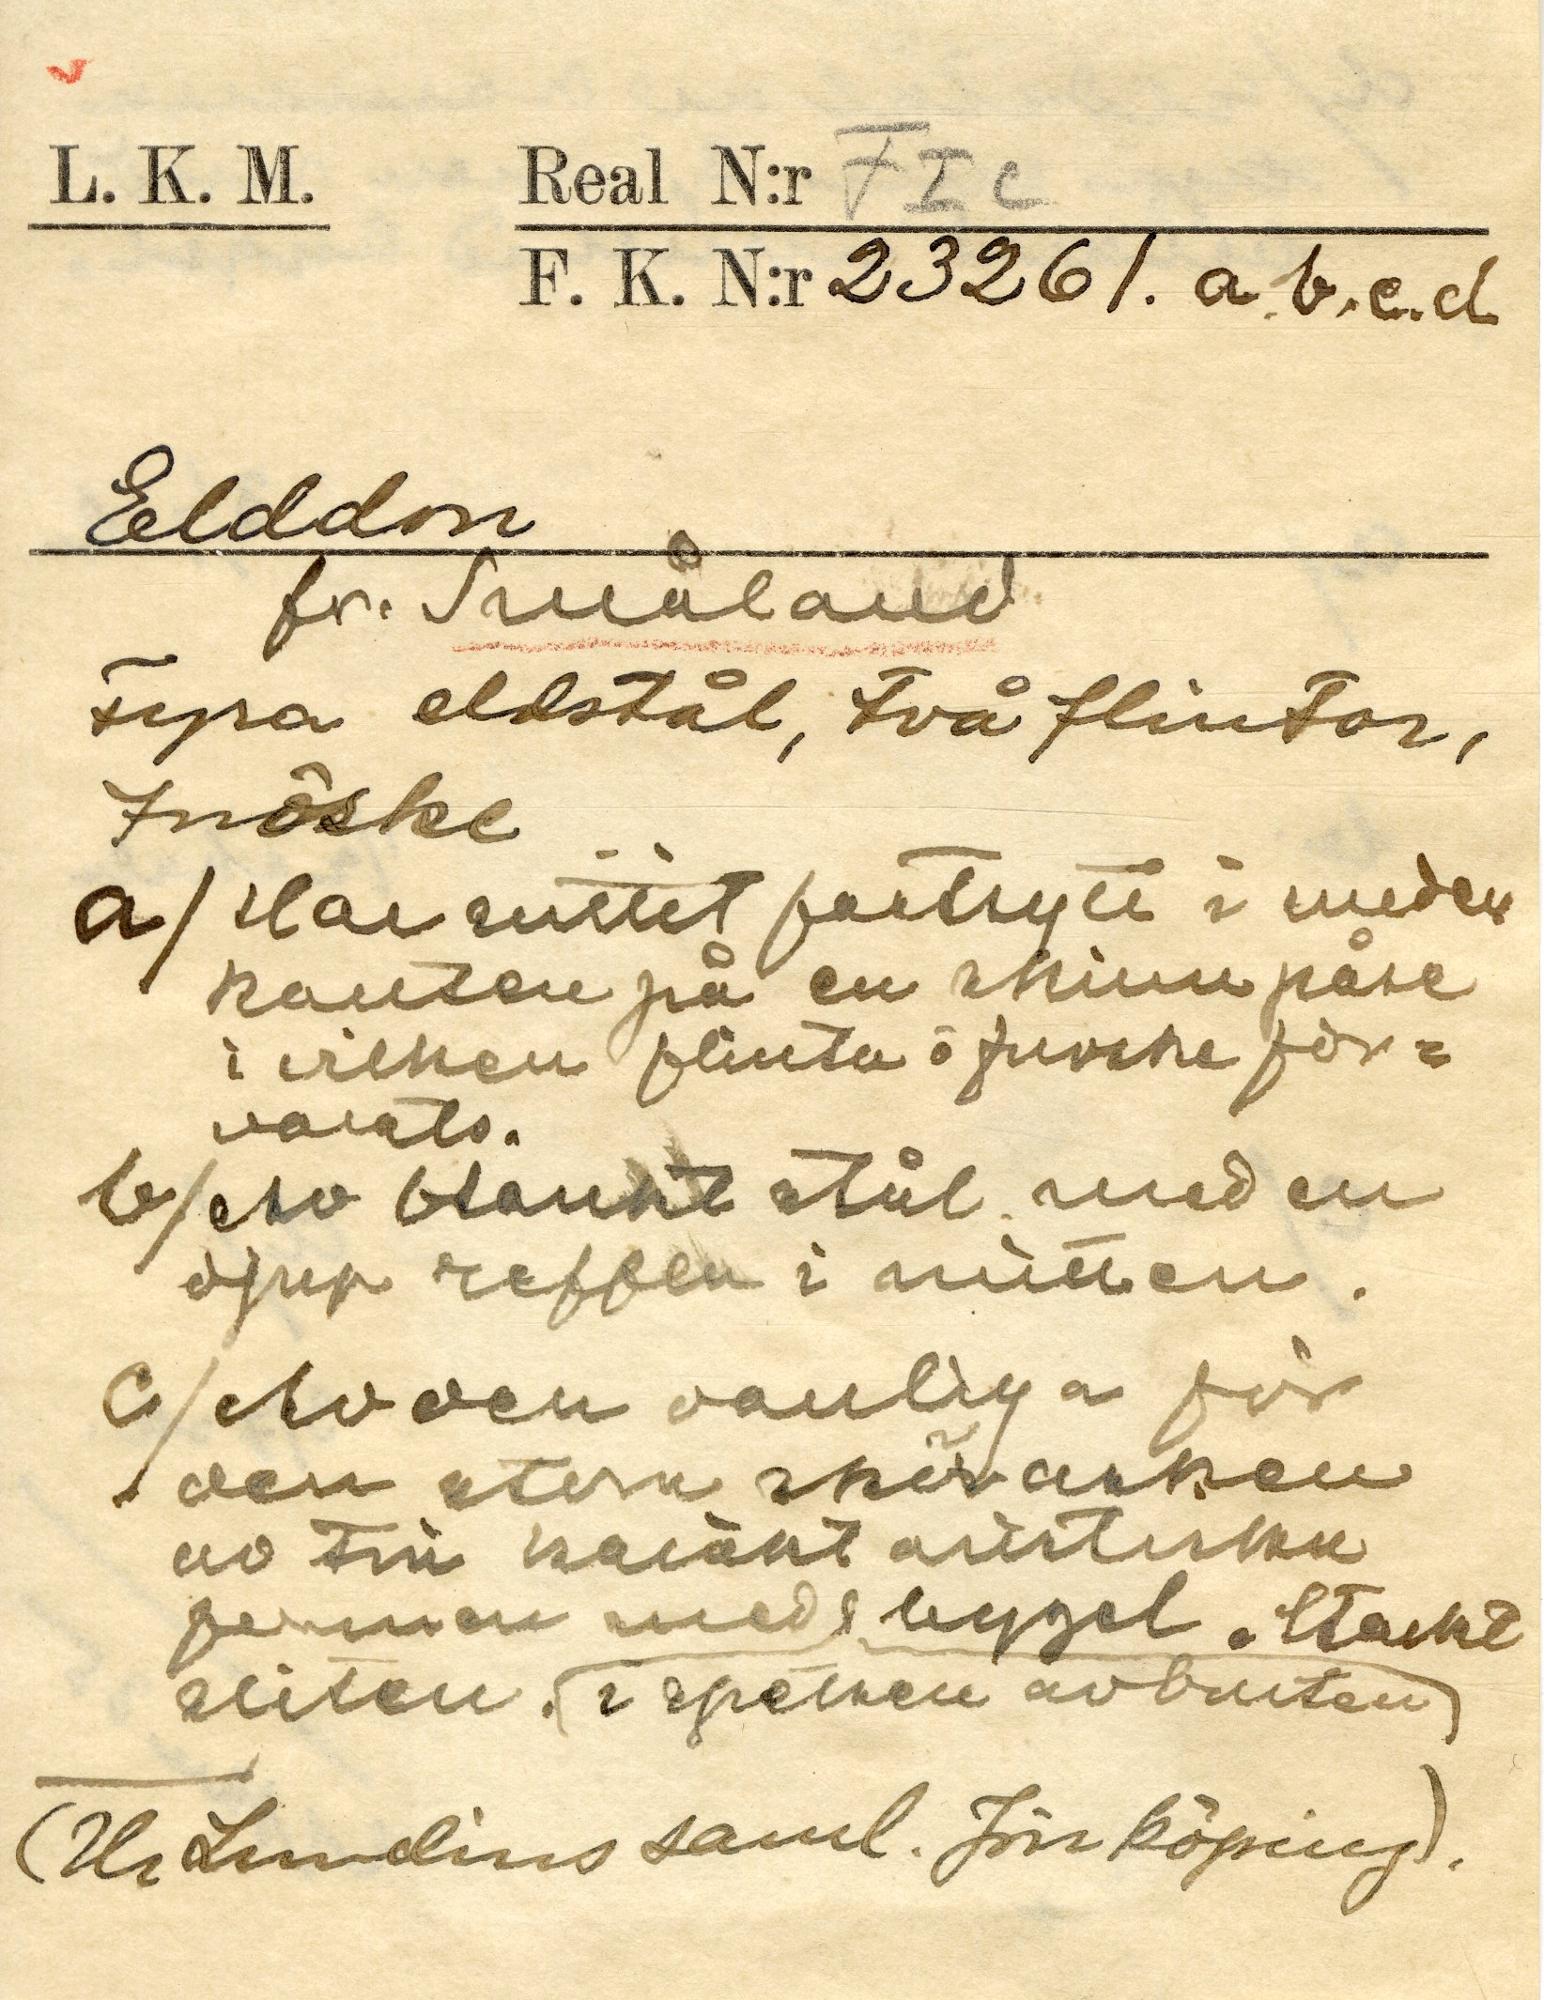 L. K. M. Real N:r F I c
F. K. N:r 23261. a.b.c.d
Elddon
fr. Småland
Fyra eldstål, två flintor,
fnöske
a/ Har suttit fastsytt i neder
kanten på en skinnpåse
i vilken flinta o fnöske för-
varats.
b/ Av blankt stål med en
djup reffla i mitten.
c/ Av den vanliga för
den skörasken
av trä
formen med bygel. Starkt
sliten. (i spetsen avbruten)
(Ur Lundins saml. Jönköping).